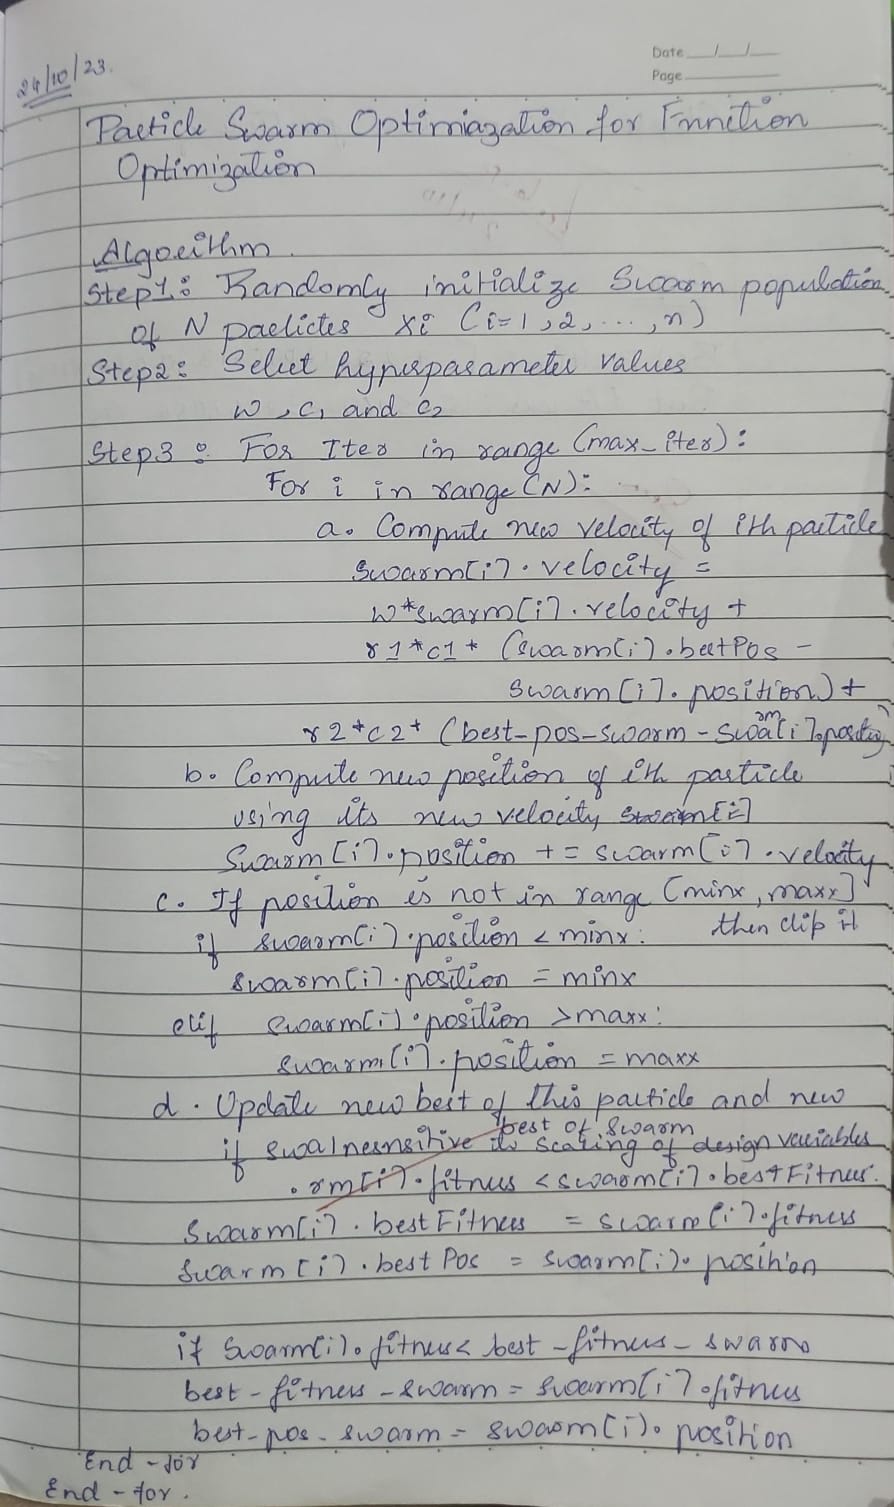 24/10/23.
Date __/__/__
Page
Particle Swarm Optimiazation for Function
Optimization
Algorithm
Step1: Randomly initialize Swarm population
of N particles xi (i=1,2,...,n)
Step2: Select hyperparameter values
w, c1 and c2
Step3: For Iter in range (max_iter):
For i in range(N):
a. Compute new velocity of ith particle
Swarm[i].velocity =
w*swarm[i].velocity +
r1*c1* (swarm[i].bestPos -
swarm[i].position) +
r2*c2* (best-pos-swarm - swarm[i].position)
b. Compute new position of ith particle
using its new velocity
Swarm[i].position += swarm[i].velocity
c. If position is not in range [minx, maxx]
then clip it
if swarm[i].position < minx:
swarm[i].position = minx
elif swarm[i].position > maxx:
swarm[i].position = maxx
d. Update new best of this particle and new
best of swarm
if to scaling of design variables
.rm[i].fitness < swarm[i].bestFitness.
Swarm[i].bestFitness = swarm[i].fitness
Swarm[i].bestPos = swarm[i].position
if Swarm[i].fitness < best-fitness-swarm
best-fitness-swarm = swarm[i].fitness
best-pos-swarm = swarm[i].position
End-for
End-for.